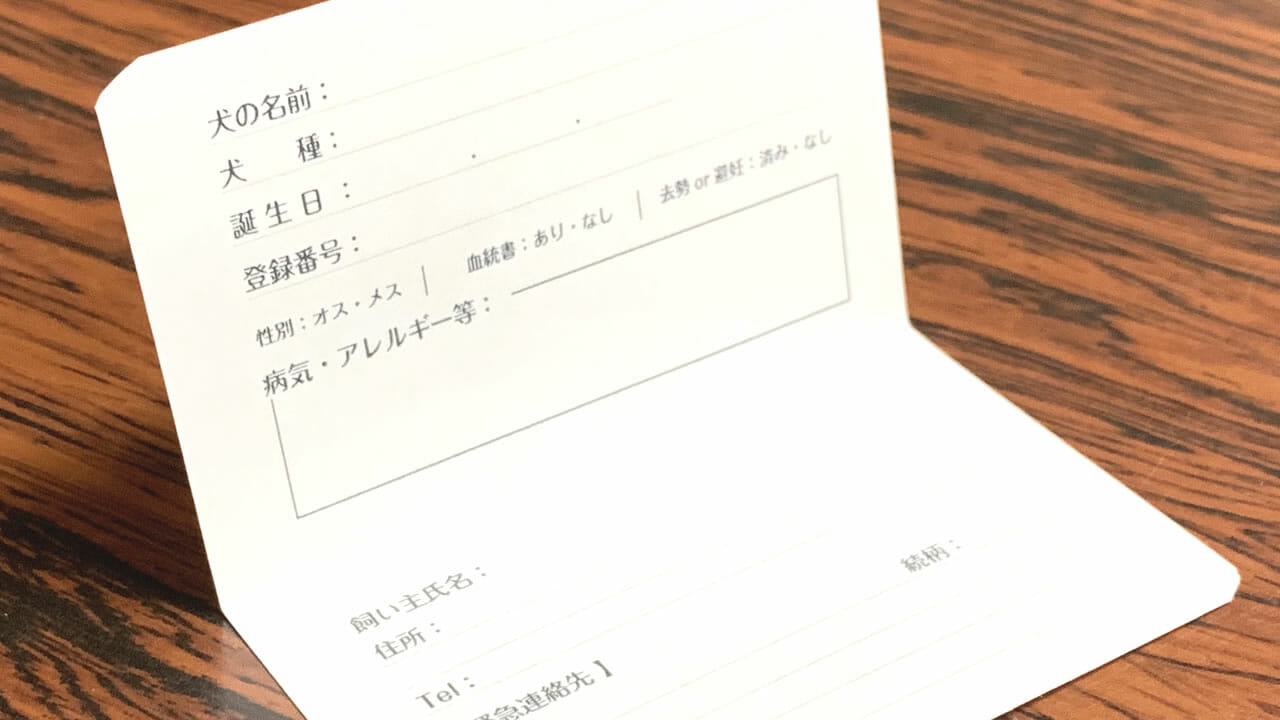 犬の名前：
犬　種：
誕生日：　・　・
登録番号：
性別：オス・メス｜血統書：あり・なし｜去勢 or 避妊：済み・なし
病気・アレルギー等：
飼い主氏名：
続柄：
住所：
Tel：
緊急連絡先】